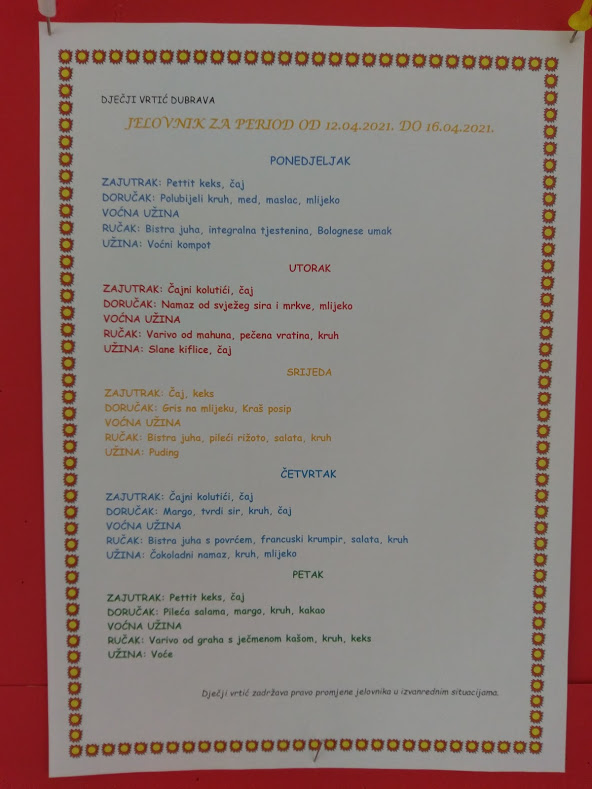 DJEČJI VRTIĆ DUBRAVA
JELOVNIK ZA PERIOD OD 12.04.2021. DO 16.04.2021.
PONEDJELJAK
ZAJUTRAK: Pettit keks, čaj
DORUČAK: Polubijeli kruh, med, maslac, mlijeko
VOĆNA UŽINA
RUČAK: Bistra juha, integralna tjestenina, Bolognese umak
UŽINA: Voćni kompot
UTORAK
ZAJUTRAK: Čajni kolutići, čaj
DORUČAK: Namaz od svježeg sira i mrkve, mlijeko
VOĆNA UŽINA
RUČAK: Varivo od mahuna, pečena vratina, kruh
UŽINA: Slane kiflice, čaj
SRIJEDA
ZAJUTRAK: Čaj, keks
DORUČAK: Gris na mlijeku, Kraš posip
VOĆNA UŽINA
RUČAK: Bistra juha, pileći rižoto, salata, kruh
UŽINA: Puding
ČETVRTAK
ZAJUTRAK: Čajni kolutići, čaj
DORUČAK: Margo, tvrdi sir, kruh, čaj
VOĆNA UŽINA
RUČAK: Bistra juha s povrćem, francuski krumpir, salata, kruh
UŽINA: Čokoladni namaz, kruh, mlijeko
PETAK
ZAJUTRAK: Pettit keks, čaj
DORUČAK: Pileća salama, margo, kruh, kakao
VOĆNA UŽINA
RUČAK: Varivo od graha s ječmenom kašom, kruh, keks
UŽINA: Voće
Dječji vrtić zadržava pravo promjene jelovnika u izvanrednim situacijama.